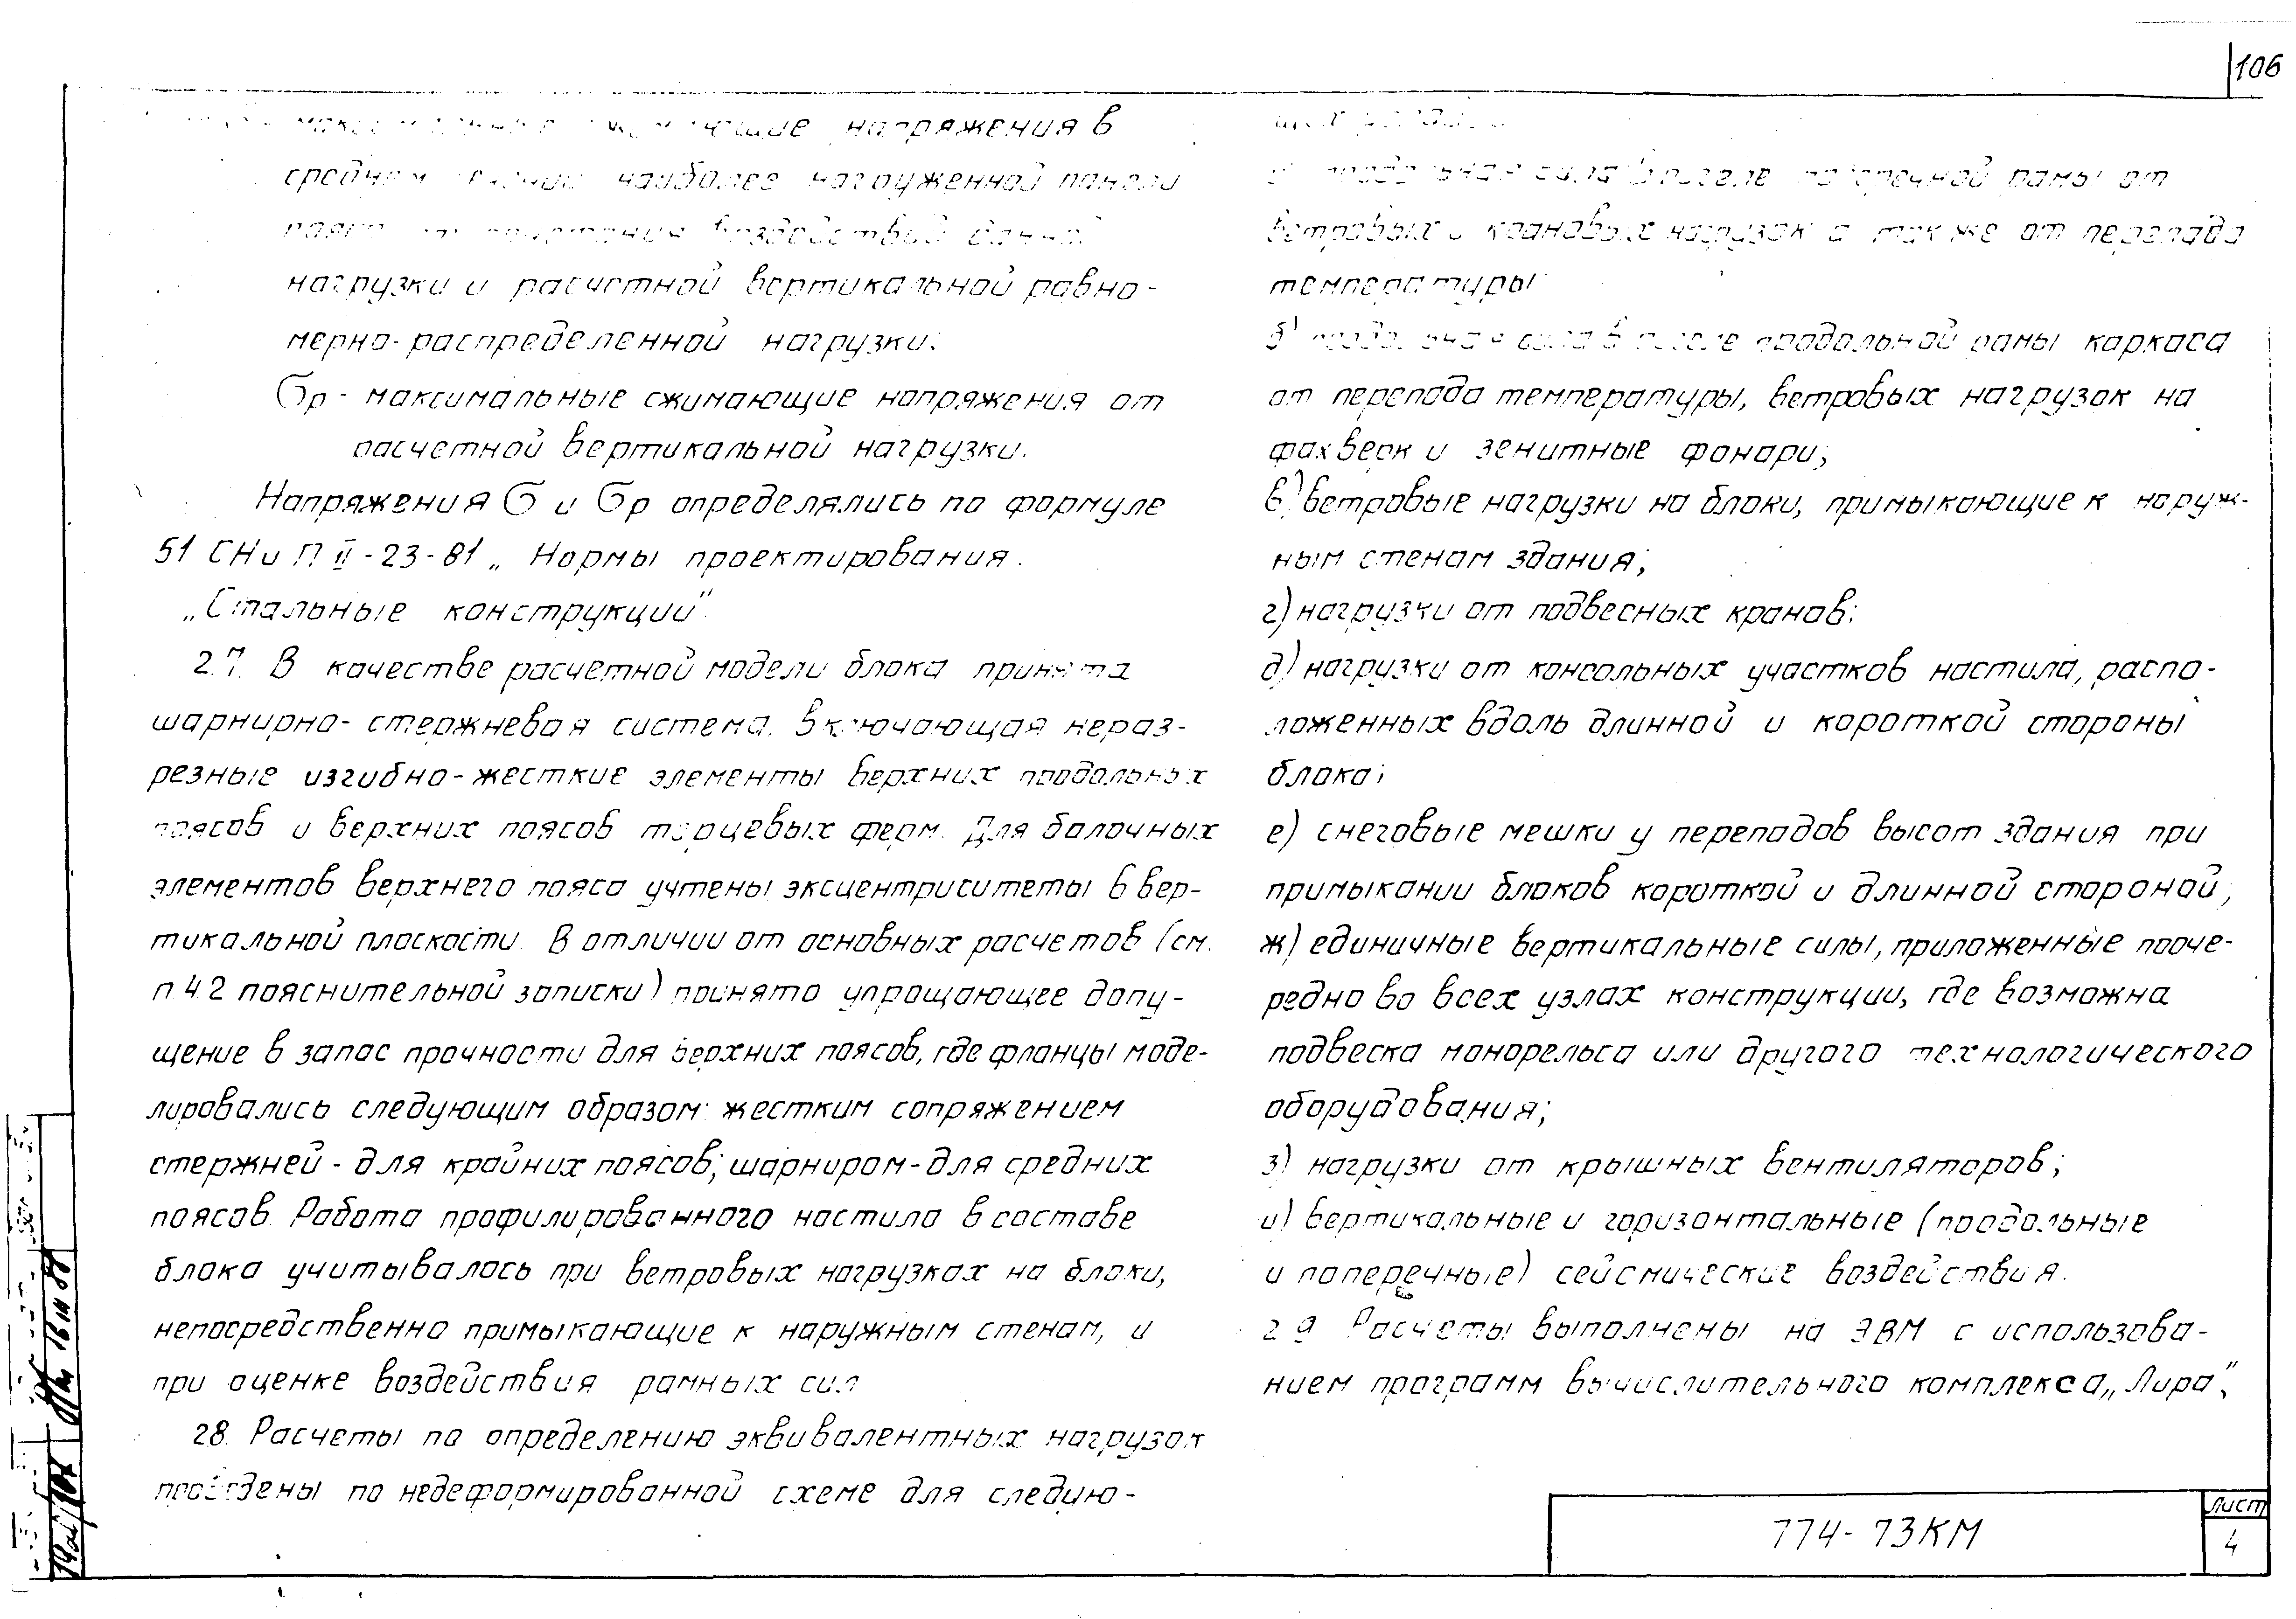 106
напряжения в
среднем наиболее нагруженной панели
воздействий
нагрузки и расчетной вертикальной равно-
мерно-распределенной нагрузки;
σр - максимальные сжимающие напряжения от
расчетной вертикальной нагрузки.
Напряжения σ и σр определялись по формуле
51 СНиП II-23-81 „Нормы проектирования.
„Стальные конструкции".
2.7. В качестве расчетной модели блока принята
шарнирно-стержневая система, включающая нераз-
резные изгибно-жесткие элементы верхних продольных
поясов и верхних поясов торцевых ферм. Для балочных
элементов верхнего пояса учтены эксцентриситеты в вер-
тикальной плоскости. В отличии от основных расчетов (см.
п 4.2 пояснительной записки) принято упрощающее допу-
щение в запас прочности для верхних поясов, где фланцы моде-
лировались следующим образом: жестким сопряжением
стержней - для крайних поясов; шарниром - для средних
поясов. Работа профилированного настила в составе
блока учитывалась при ветровых нагрузках на блоки,
непосредственно примыкающие к наружным стенам, и
при оценке воздействия рамных сил
2.8. Расчеты по определению эквивалентных нагрузок
проведены по недеформированной схеме для следую-
сила в ригеле поперечной рамы от
ветровых и крановых нагрузок а также от перепада
температуры
б) продольная сила в ригеле продольной рамы каркаса
от перепада температуры, ветровых нагрузок на
фахверк и зенитные фонари;
в) ветровые нагрузки на блоки, примыкающие к наруж-
ным стенам здания;
г) нагрузки от подвесных кранов;
д) нагрузки от консольных участков настила, распо-
ложенных вдоль длинной и короткой стороны
блока;
е) снеговые мешки у перепадов высот здания при
примыкании блоков короткой и длинной стороной;
ж) единичные вертикальные силы, приложенные пооче-
редно во всех узлах конструкции, где возможна
подвеска монорельса или другого технологического
оборудования;
з) нагрузки от крышных вентиляторов;
и) вертикальные и горизонтальные (продольные
и поперечные) сейсмические воздействия.
2.9 Расчеты выполнены на ЭВМ с использова-
нием программ вычислительного комплекса „Лира",
774-73КМ
Лист
4